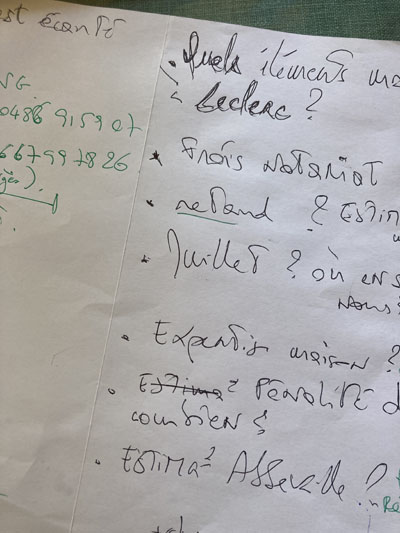 est écarté
NG.
0486 915907
667997826
).
• Quels éléments ma
à Leclerc ?
* Frais Notariat
* retard ? Estim
• Juillet ? où en s
nous
• Expertise maison ?
• Estima° Pénalité d
combien ?
• ESTIMA° Asserville ?
Ré